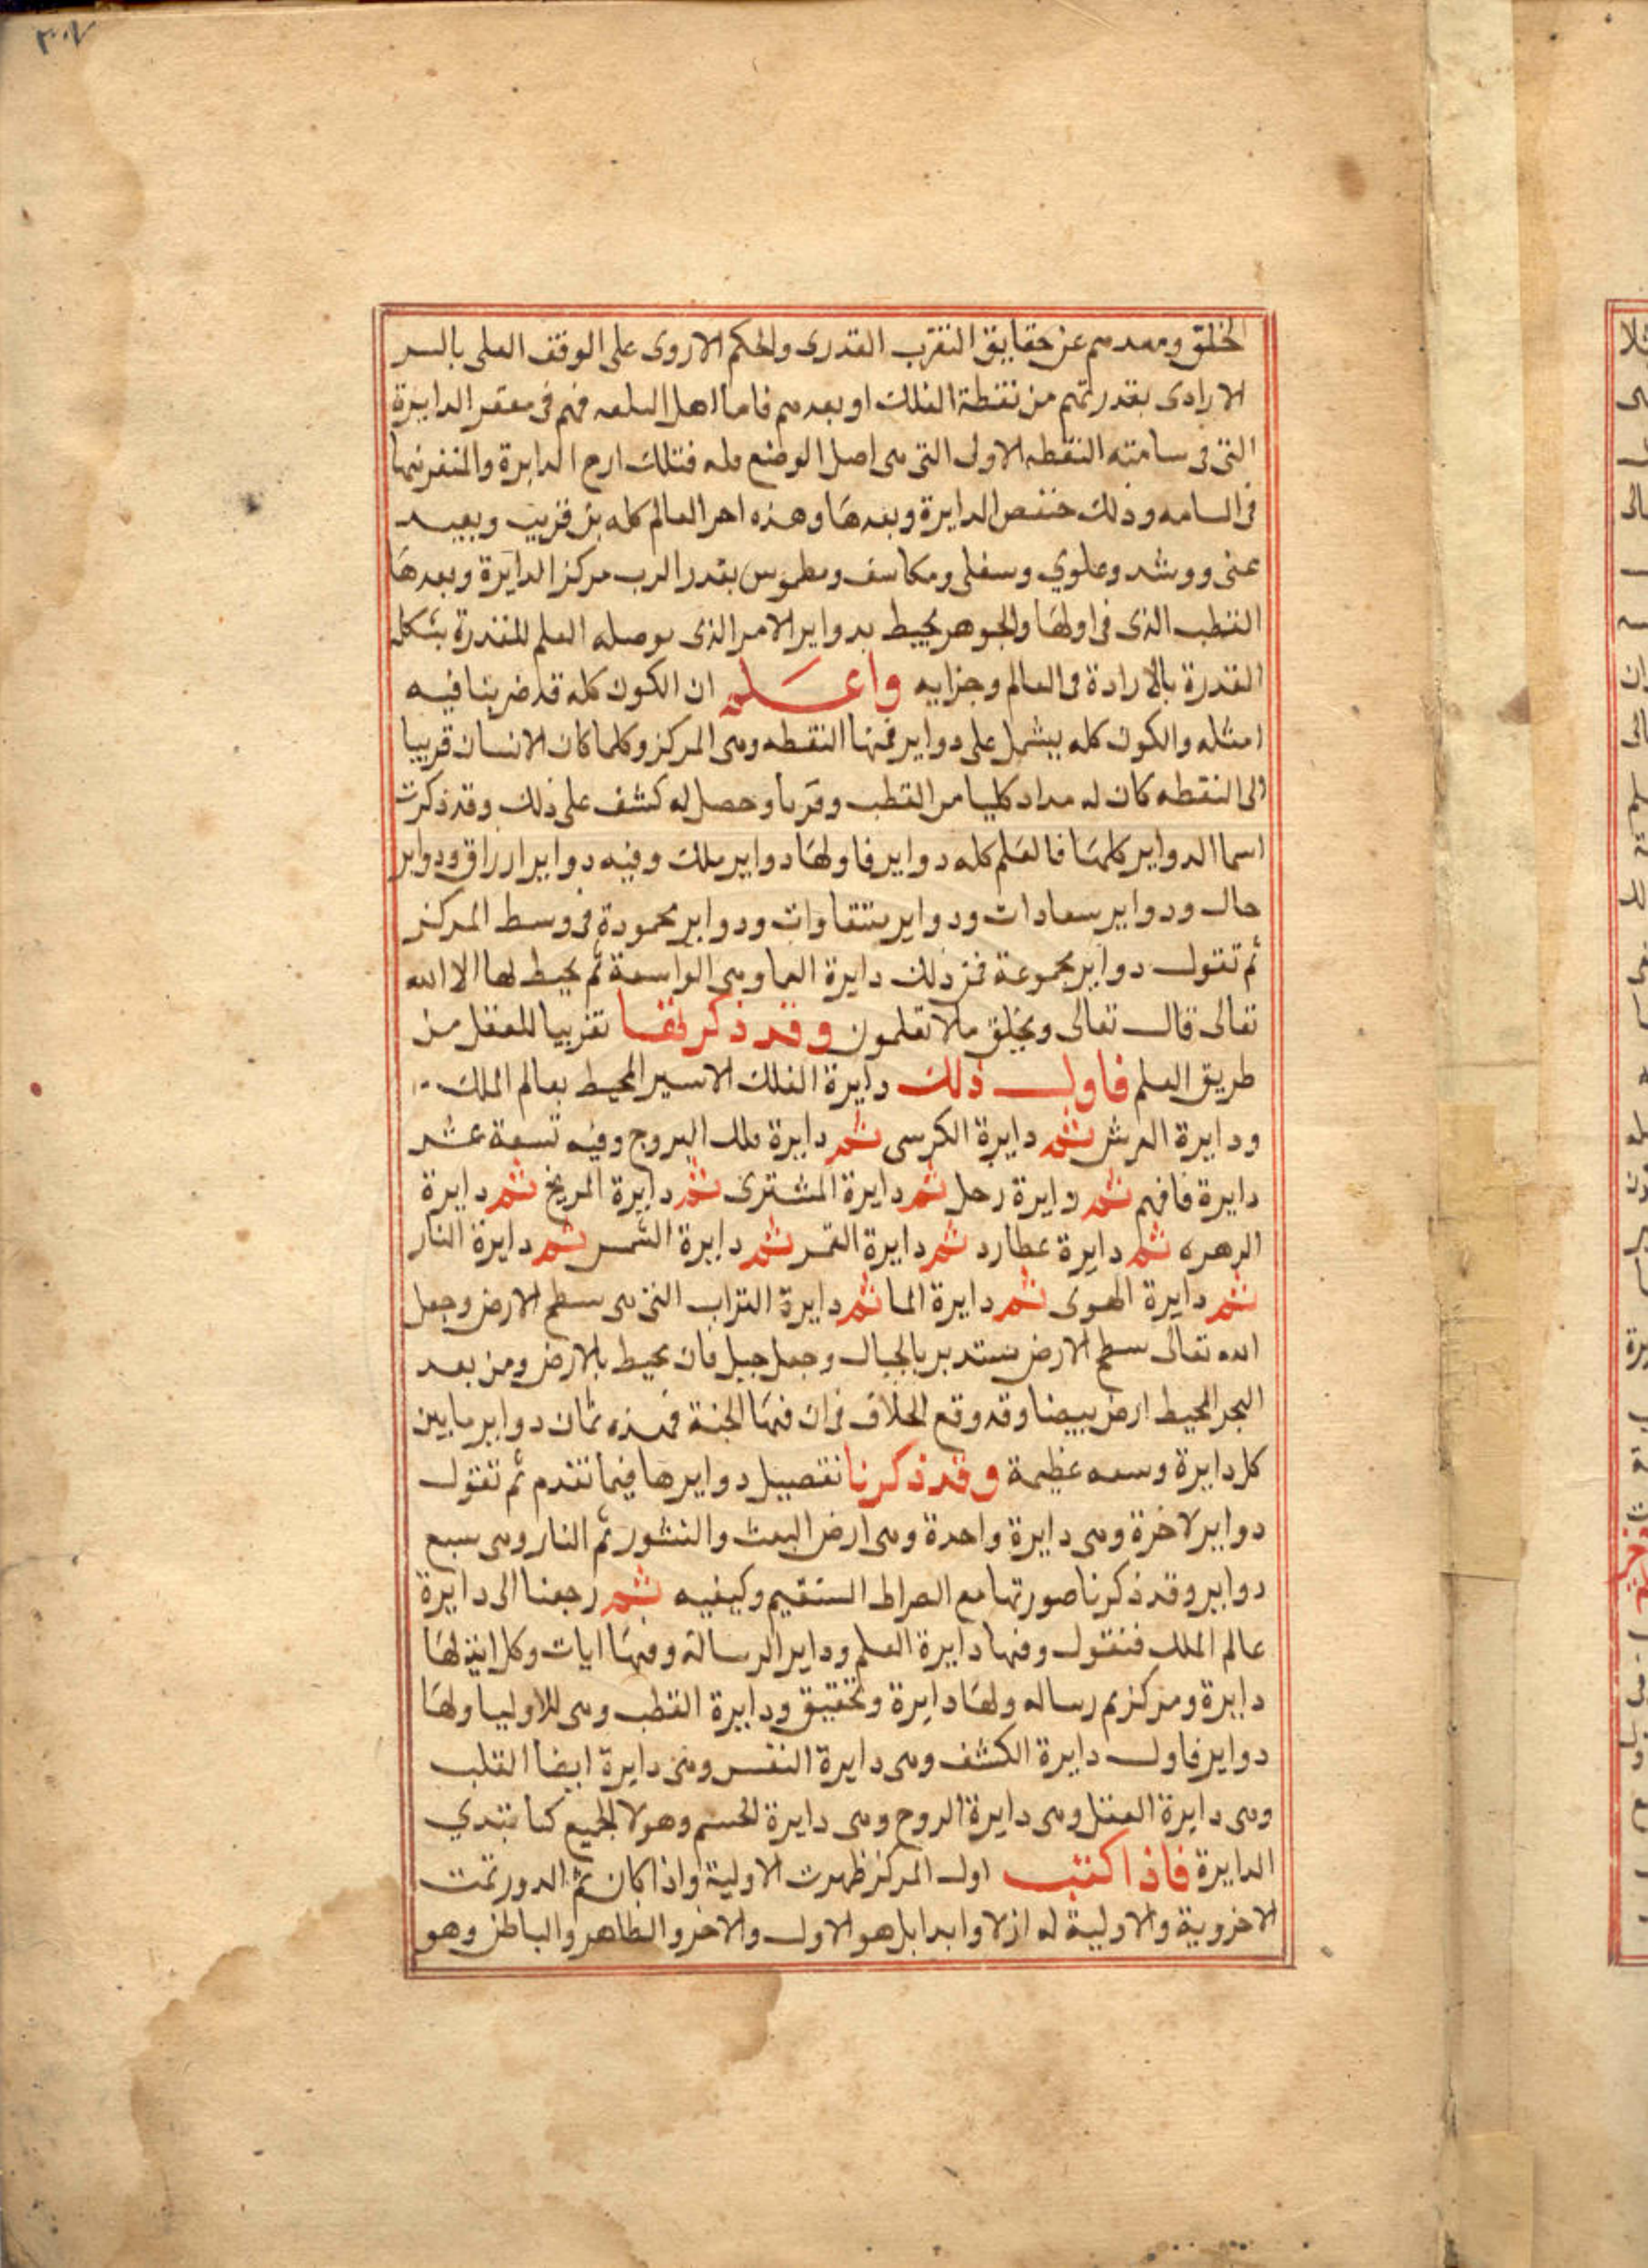 ٣٠٧
الخلق وبعدهم عن حقايق التقرب القدرى والحكم الاروى على الوقف العلى بالسر
الارادى بقدر قربهم من نقطة الفلك او بعدهم فاما اهل فهم فى مقعر الدايرة
التى فى سامتة النقطه الاولى التى هى اصل الوضع فتلك الدايرة والمنفر فيها
فى وذلك الدايرة وبعدها وهذه العالم كله بين قريب وبعيد
وعلوي وسفلى ومكاشف ومطموس بقدر القرب مركز الدايرة وبعدها
القطب الذى فى اولها والجوهر محيط بدواير الامر الذى العلم المقدرة بشكله
القدرة بالارادة فى العالم وجزايه واعلم ان الكون كله قد ضربنا فيه
امثله والكون كله يشمل على دواير فمنها النقطه وهى المركز وكلما كان الانسان قريبا
الى النقطه كان له مداد كليا من القطب وقربا وحصل له كشف على ذلك وقد ذكرت
اسما الدواير كلها فالعلم كله دواير فاولها دواير ملك وفيه دواير ارزاق ودواير
حال ودواير سعادات ودواير شقاوات ودواير محمودة فى وسط المركز
ثم تقول دواير مجموعة فمن ذلك دايرة العما وهى الواسعة ثم يحيط لها الا الله
تعالى قال تعالى ويخلق ملا تعلمون وقد ذكرنها تقريبا للعقل من
طريق العلم فاول ذلك دايرة الفلك الاسير المحيط بعالم الملك
ودايرة العرش ثم دايرة الكرسى ثم دايرة فلك البروج وفيه تسعة عشر
دايرة فافهم ثم دايرة زحل ثم دايرة المشترى ثم دايرة المريخ ثم دايرة
الزهره ثم دايرة عطارد ثم دايرة القمر ثم دايرة الشمس ثم دايرة النار
ثم دايرة الهوى ثم دايرة الما ثم دايرة التراب التى هى سطح الارض وجعل
الله تعالى سطح الارض مستدير بالجبال وجعل جبل قاف محيط بالارض ومن بعد
البحر المحيط ارض بيضا وقد وقع الخلاف فى ان فيها الجنة فهذه ثمان دواير ما بين
كل دايرة وسعه عظيمة وقد ذكرنا تفصيل دوايرها فيما تقدم ثم تقول
دواير لاخرة وهى دايرة واحدة وهى ارض البعث والنشور ثم النار وهى سبع
دواير وقد ذكرنا صورتها مع الصراط المستقيم وكيفيه ثم رجعنا الى دايرة
عالم الملك فنقول ومنها دايرة العلم وداير الرسالة ومنها ايات وكل اية لها
دايرة ومركز رساله ولها دايرة وتحقيق ودايرة القطب وهى للاوليا ولها
دواير فاول دايرة الكشف وهى دايرة النفس وهى دايرة ايضا القلب
وهى دايرة العقل وهى دايرة الروح وهى دايرة الجسم وهولا الجميع كما تبتدي
الدايرة فاذا كتبت اول المركز ظهرت الاولية واذا كان ثم الدور تمت
الاخروية والاولية له ازلا وابدا بل هو الاول والاخر والظاهر والباطن وهو